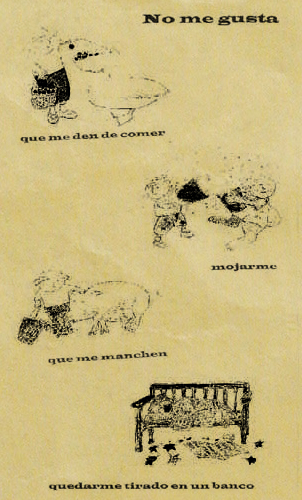 No me gusta
que me den de comer
mojarme
que me manchen
quedarme tirado en un banco